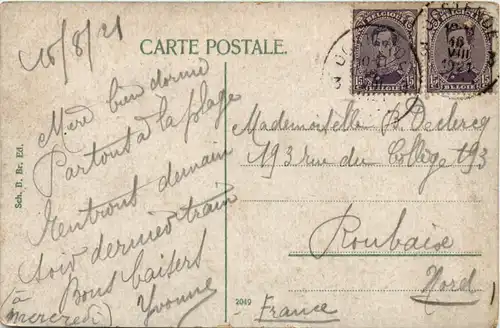 16/8/21
CARTE POSTALE.
Mère bien dormi
Partons à la plage
Rentront demain
soir dernier train
Bons baisers
Yvonne
(à mercredi)
Sch. B. Br. Ed.
BELGIQUE
15 BELGIË 15
BELGIQUE
15 BELGIË 15
OOSTENDE
16
VIII
1921
Mademoiselle P. Declercq
193 rue du Collège 193
Roubaix
Nord
France
2049